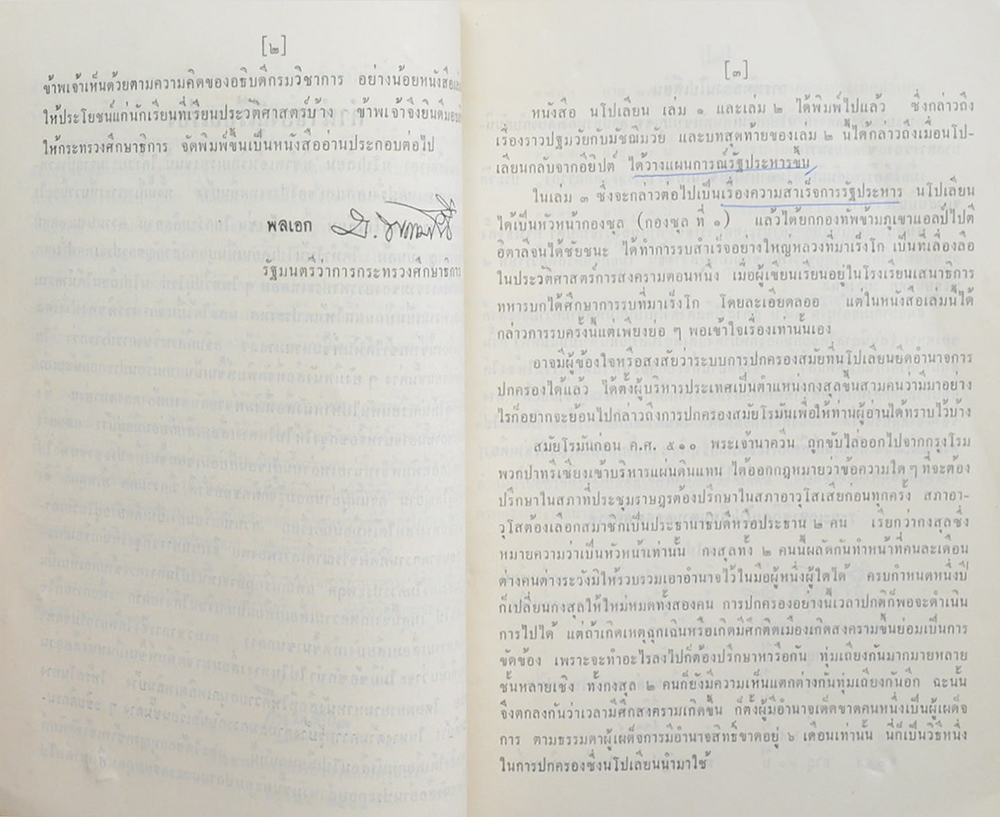 [๒]
ข้าพเจ้าเห็นด้วยตามความคิดของอธิบดีกรมวิชาการ อย่างน้อยหนังสือ
ให้ประโยชน์แก่นักเรียนที่เรียนประวัติศาสตร์บ้าง ข้าพเจ้าจึงยินดีมอบ
ให้กระทรวงศึกษาธิการ จัดพิมพ์ขึ้นเป็นหนังสืออ่านประกอบต่อไป
พลเอก
รัฐมนตรีว่าการกระทรวงศึกษาธิการ
[๓]
หนังสือ นโปเลียน เล่ม ๑ และเล่ม ๒ ได้พิมพ์ไปแล้ว ซึ่งกล่าวถึง
เรื่องราวปฐมวัยกับมัชฌิมวัย และบทสุดท้ายของเล่ม ๒ นี้ได้กล่าวถึงเมื่อนโป-
เลียนกลับจากอียิปต์ ได้วางแผนการณ์รัฐประหารขึ้น
ในเล่ม ๓ ซึ่งจะกล่าวต่อไปเป็นเรื่องความสำเร็จการรัฐประหาร นโปเลียน
ได้เป็นหัวหน้ากองซูล (กองซูล ที่ ๑) แล้วได้ยกกองทัพข้ามภูเขาแอลป์ไปตี
อิตาลีจนได้ชัยชนะ ได้ทำการรบสำเร็จอย่างใหญ่หลวงที่มาเร็งโก เป็นที่เลื่องลือ
ในประวัติศาสตร์การสงครามตอนหนึ่ง เมื่อผู้เขียนเรียนอยู่ในโรงเรียนเสนาธิการ
ทหารบกได้ศึกษาการรบที่มาเร็งโก โดยละเอียดตลอด แต่ในหนังสือเล่มนี้ได้
กล่าวการรบครั้งนี้แต่เพียงย่อ ๆ พอเข้าใจเรื่องเท่านั้นเอง
อาจมีผู้ข้องใจหรือสงสัยว่าระบบการปกครองสมัยที่นโปเลียนยึดอำนาจการ
ปกครองได้แล้ว ได้ตั้งผู้บริหารประเทศเป็นตำแหน่งกงสุลขึ้นสามคนว่ามีมาอย่าง
ไรก็อยากจะย้อนไปกล่าวถึงการปกครองสมัยโรมันเพื่อให้ท่านผู้อ่านได้ทราบไว้บ้าง
สมัยโรมันก่อน ค.ศ. ๕๑๐ พระเจ้านาควิน ถูกขับไล่ออกไปจากกรุงโรม
พวกปาทริเซียงเข้าบริหารแผ่นดินแทน ได้ออกกฎหมายว่าข้อความใดๆ ที่จะต้อง
ปรึกษาในสภาที่ประชุมราษฎรต้องปรึกษาในสภาอาวุโสเสียก่อนทุกครั้ง สภาอา-
วุโสต้องเลือกสมาชิกเป็นประธานาธิบดีหรือประธาน ๒ คน เรียกว่ากงสุลซึ่ง
หมายความว่าเป็นหัวหน้าเท่านั้น กงสุลทั้ง ๒ คนนี้ผลัดกันทำหน้าที่คนละเดือน
ต่างคนต่างระวังมิให้รวบรวมเอาอำนาจไว้ในมือผู้หนึ่งผู้ใดได้ ครบกำหนดหนึ่งปี
ก็เปลี่ยนกงสุลให้ใหม่หมดทั้งสองคน การปกครองอย่างนี้เวลาปกติก็พอจะดำเนิน
การไปได้ แต่ถ้าเกิดเหตุฉุกเฉินหรือเกิดมีศึกติดเมืองเกิดสงครามขึ้นย่อมเป็นการ
ขัดข้อง เพราะจะทำอะไรลงไปก็ต้องปรึกษาหารือกัน ทุ่มเถียงกันมากมายหลาย
ชั้นหลายเชิง ทั้งกงสุล ๒ คนก็ยังมีความเห็นแตกต่างกันทุ่มเถียงกันอีก ฉะนั้น
จึงตกลงกันว่าเวลามีศึกสงครามเกิดขึ้น ก็ตั้งผู้มีอำนาจเด็ดขาดคนหนึ่งเป็นผู้เผด็จ
การ ตามธรรมดาผู้เผด็จการมีอำนาจสิทธิ์ขาดอยู่ ๖ เดือนเท่านั้น นี่ก็เป็นวิธีหนึ่ง
ในการปกครองซึ่งนโปเลียนนำมาใช้